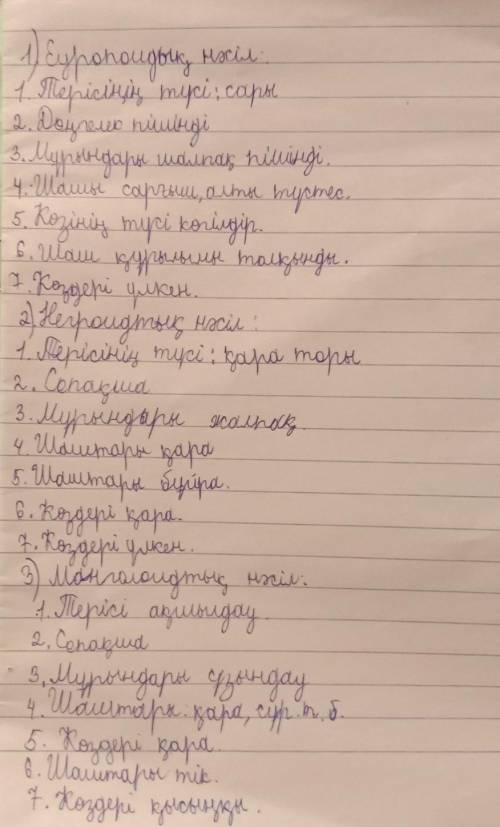 1) Еуропоидық нәсіл:
1. Терісінің түсі: сары
2. Дөңгелек пішінді
3. Мұрындары шалпақ пішінді.
4. Шашы сарғыш, алты түстес.
5. Көзінің түсі көгілдір.
6. Шаш құрылымы толқынды.
7. Көздері үлкен.
2) Негроидтық нәсіл:
1. Терісінің түсі: қара торы
2. Сопақша
3. Мұрындары жалпақ
4. Шаштары қара
5. Шаштары бұйра.
6. Көздері қара.
7. Көздері үлкен.
3) Монголоидтық нәсіл:
1. Терісі ақшылдау.
2. Сопақша
3. Мұрындары ұзындау
4. Шаштары: қара, сұр. т. б.
5. Көздері қара.
6. Шаштары тік.
7. Көздері қысыңқы.